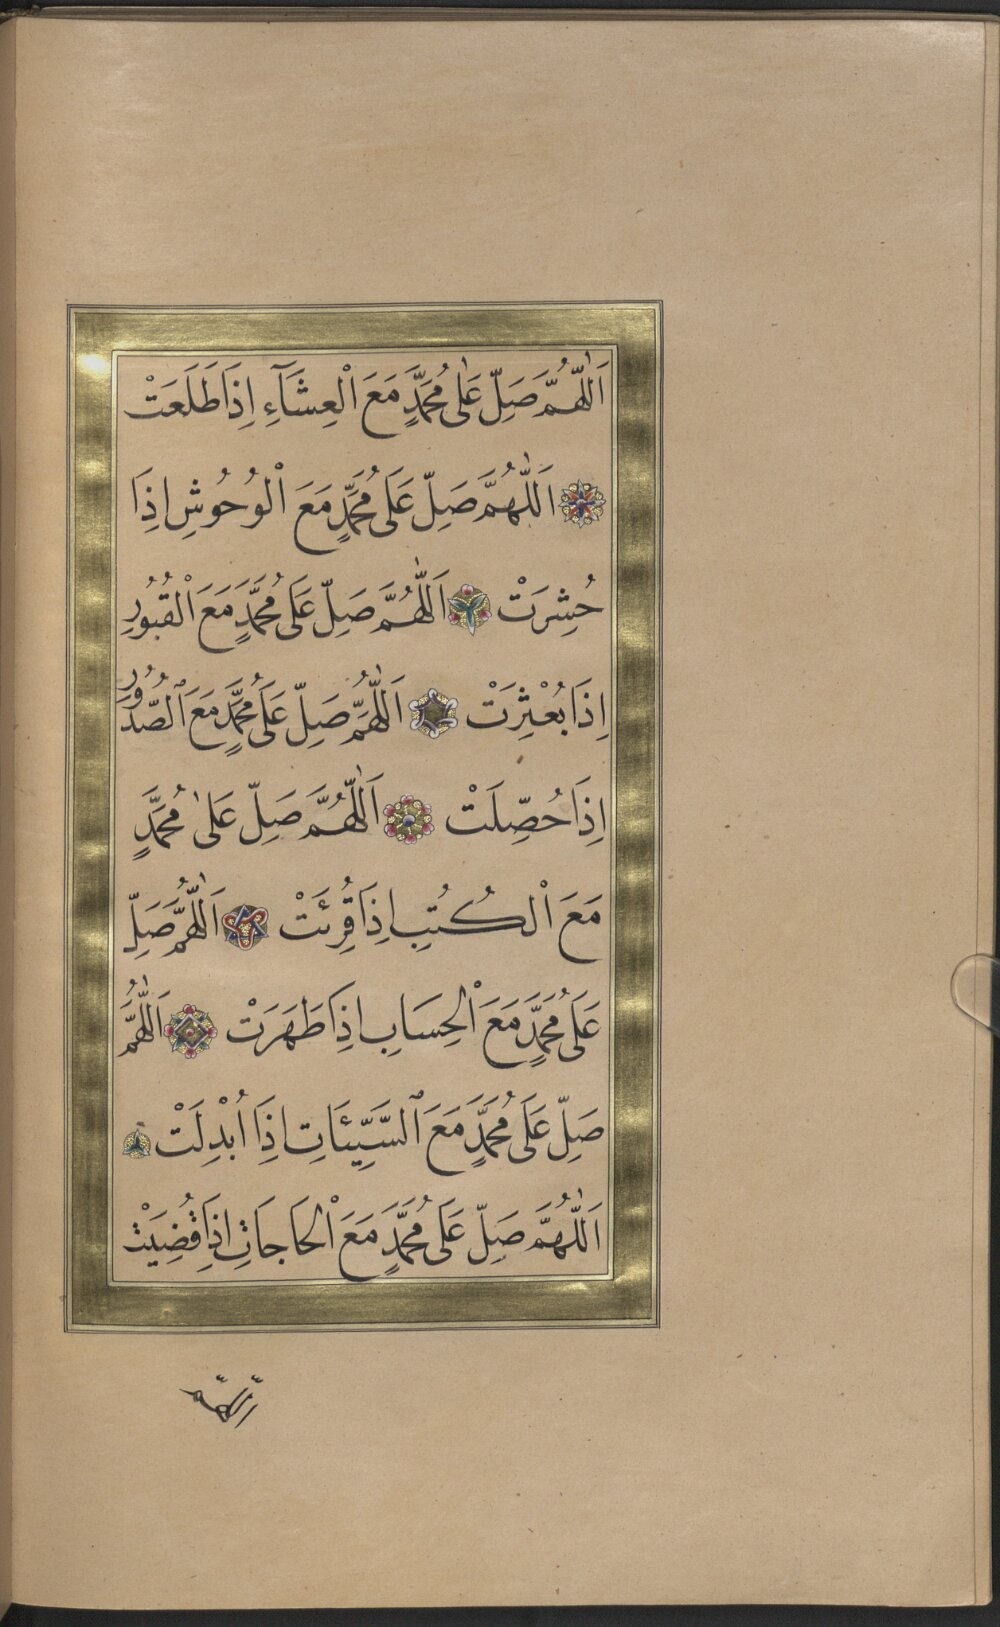 اَللّٰهُمَّ صَلِّ عَلٰى مُحَمَّدٍ مَعَ الْعِشَآءِ اِذَا طَلَعَتْ
اَللّٰهُمَّ صَلِّ عَلَى مُحَمَّدٍ مَعَ الْوُحُوشِ اِذَا
حُشِرَتْ اَللّٰهُمَّ صَلِّ عَلَى مُحَمَّدٍ مَعَ الْقُبُورِ
اِذَا بُعْثِرَتْ اَللّٰهُمَّ صَلِّ عَلَى مُحَمَّدٍ مَعَ الصُّدُورِ
اِذَا حُصِّلَتْ اَللّٰهُمَّ صَلِّ عَلٰى مُحَمَّدٍ
مَعَ الْكُتُبِ اِذَا قُرِئَتْ اَللّٰهُمَّ صَلِّ
عَلَى مُحَمَّدٍ مَعَ الْحِسَابِ اِذَا ظَهَرَتْ اَللّٰهُمَّ
صَلِّ عَلَى مُحَمَّدٍ مَعَ السَّيِّئَاتِ اِذَا اُبْدِلَتْ
اَللّٰهُمَّ صَلِّ عَلَى مُحَمَّدٍ مَعَ الْحَاجَاتِ اِذَا قُضِيَتْ
اللهم